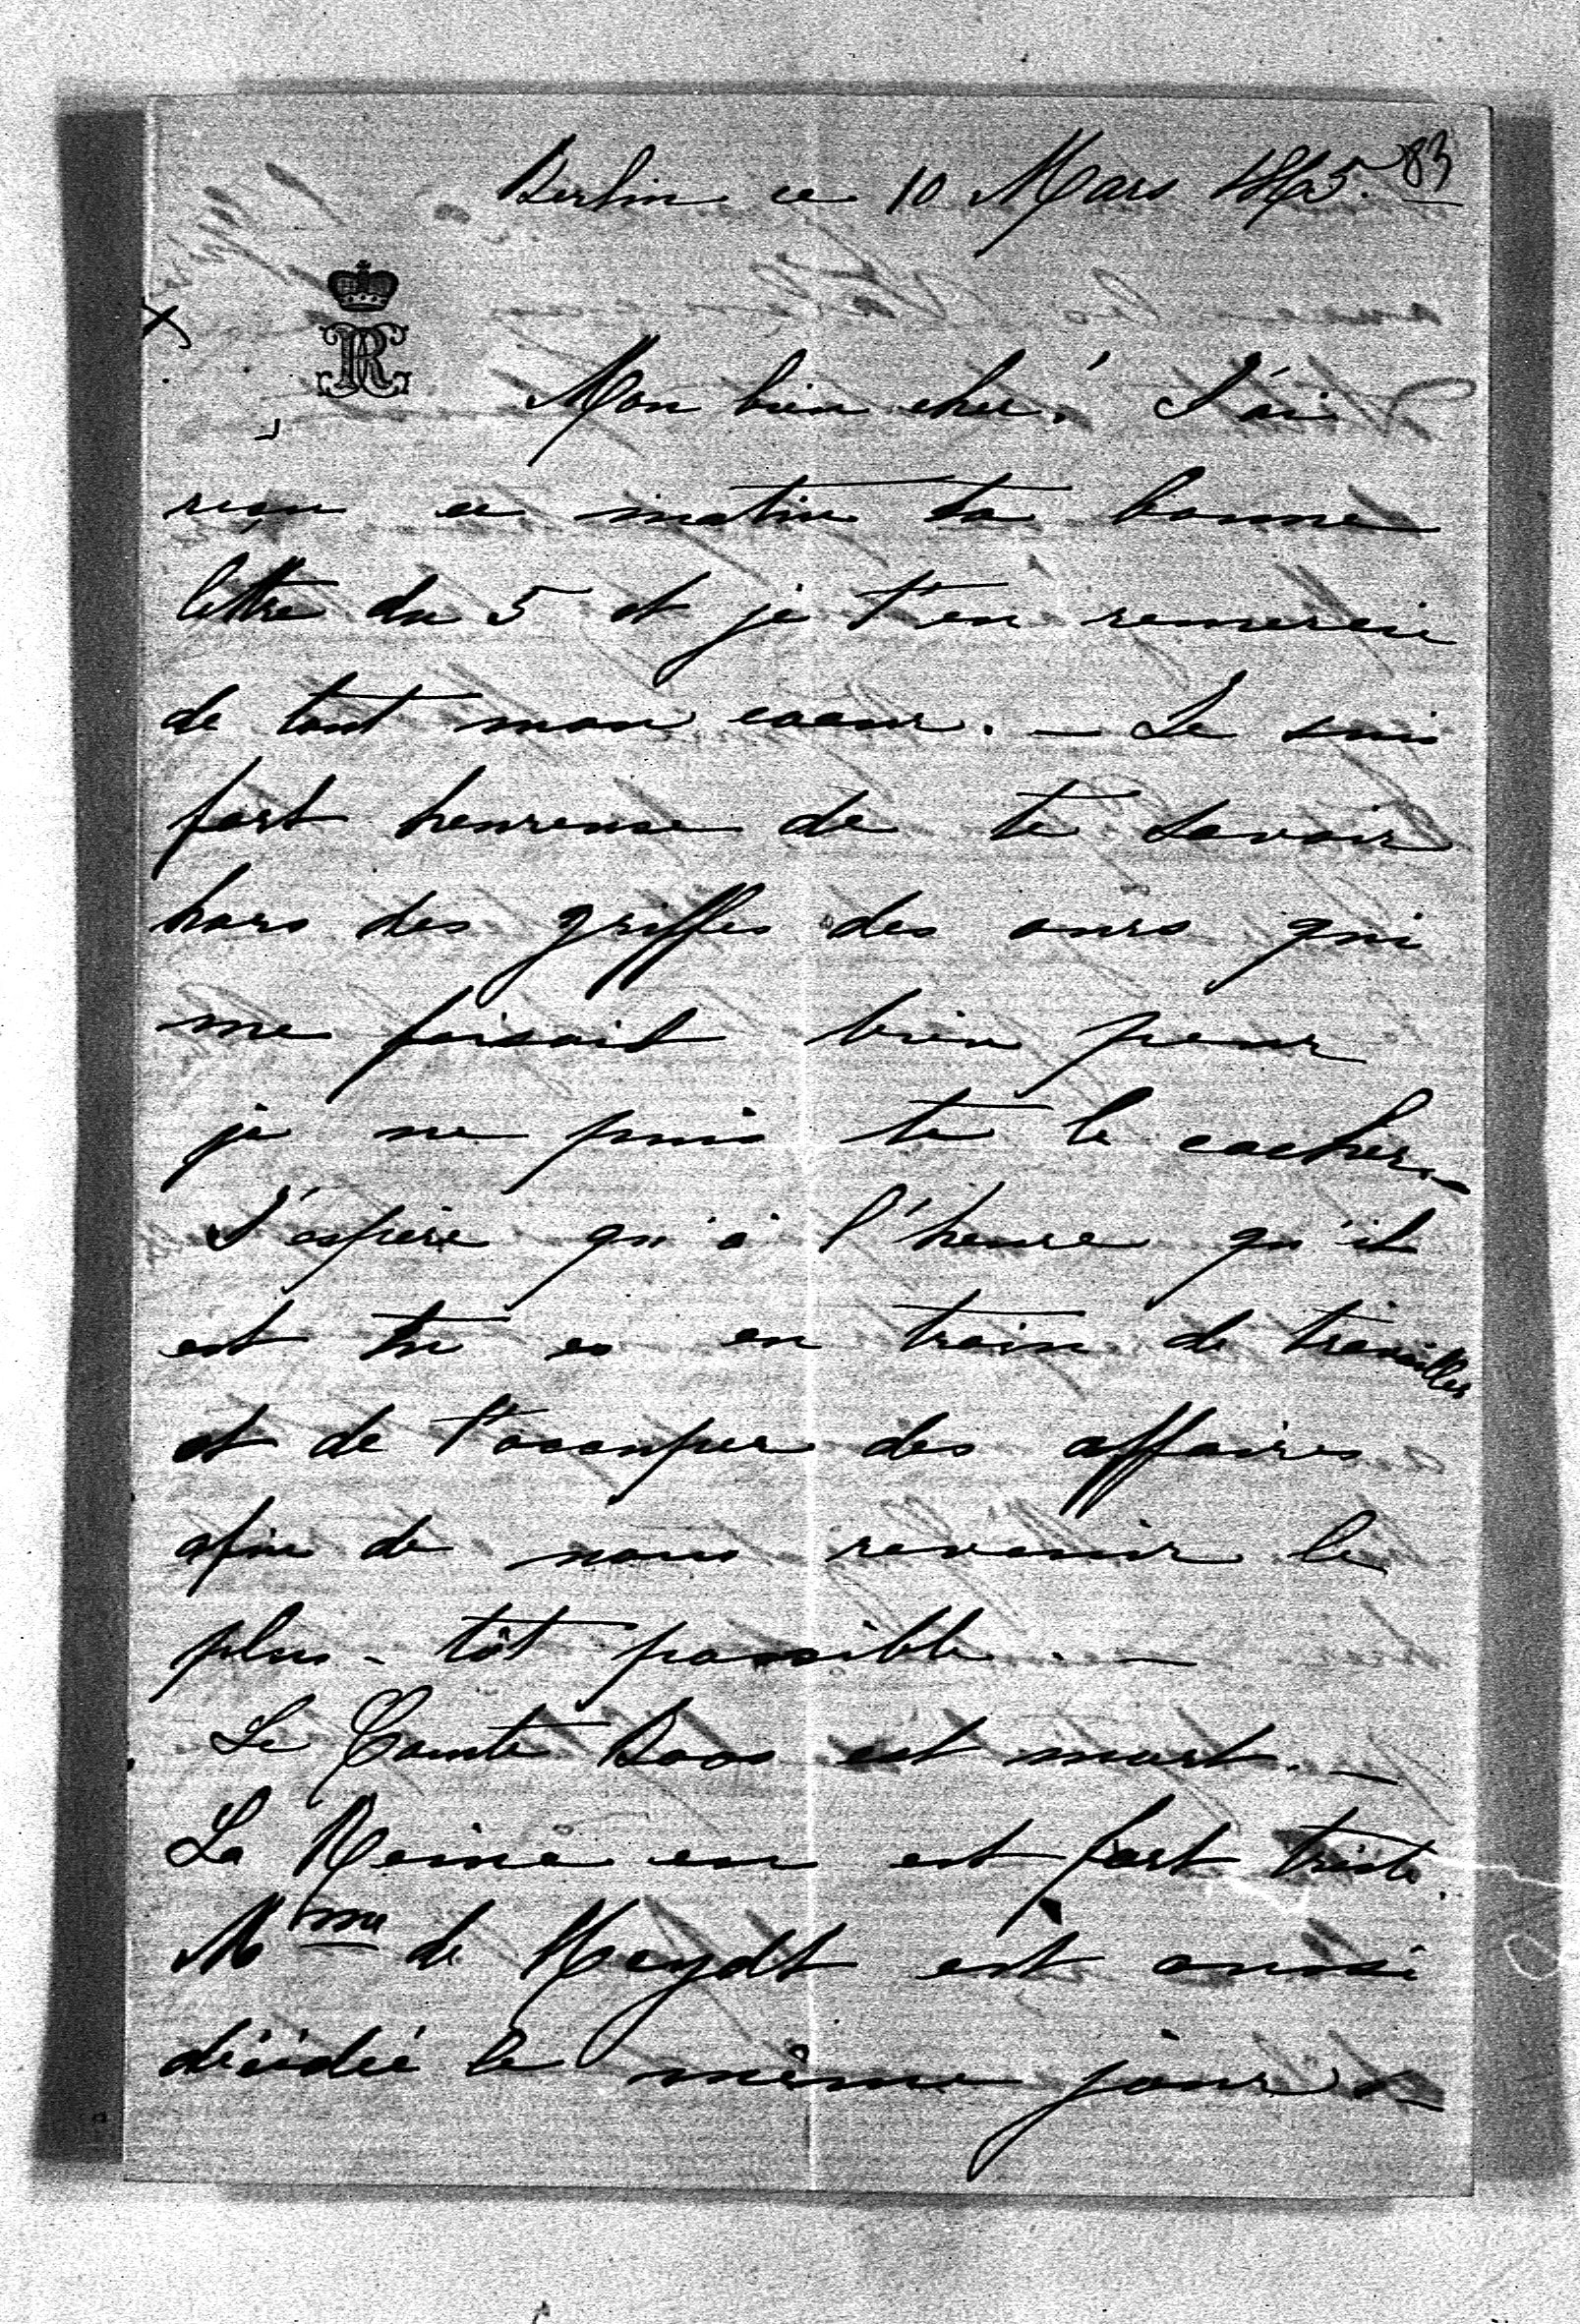 83
Berlin ce 10 Mars 1865.
Mon bien cher! J'ai
reçu ce matin ta bonne
lettre du 5 et je t'en remercie
de tout mon coeur. — Je suis
fort heureuse de te savoir
hors des griffes des ours qui
me faisait bien peur
je ne puis te le cacher. —
J'espère qu'à l'heure qu'il
est tu es en train de travailler
et de t'occuper des affaires
afin de nous revenir le
plus-tôt possible. —
Le Comte Boos est mort. —
La Reine en est fort triste.
Mme de Heydt est aussi
décédée le même jour. —